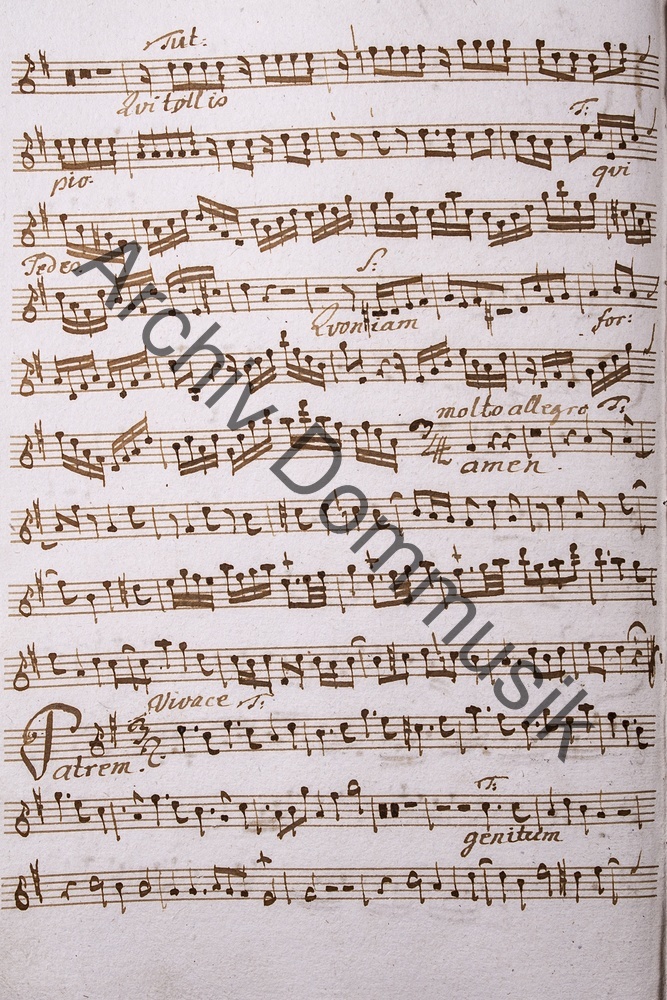 Tut:
Qui tollis
T:
pio. qui
Sedes S:
Quoniam for:
molto allegro T:
amen.
Vivace T:
Patrem.
T:
genitum
Archiv Dommusik